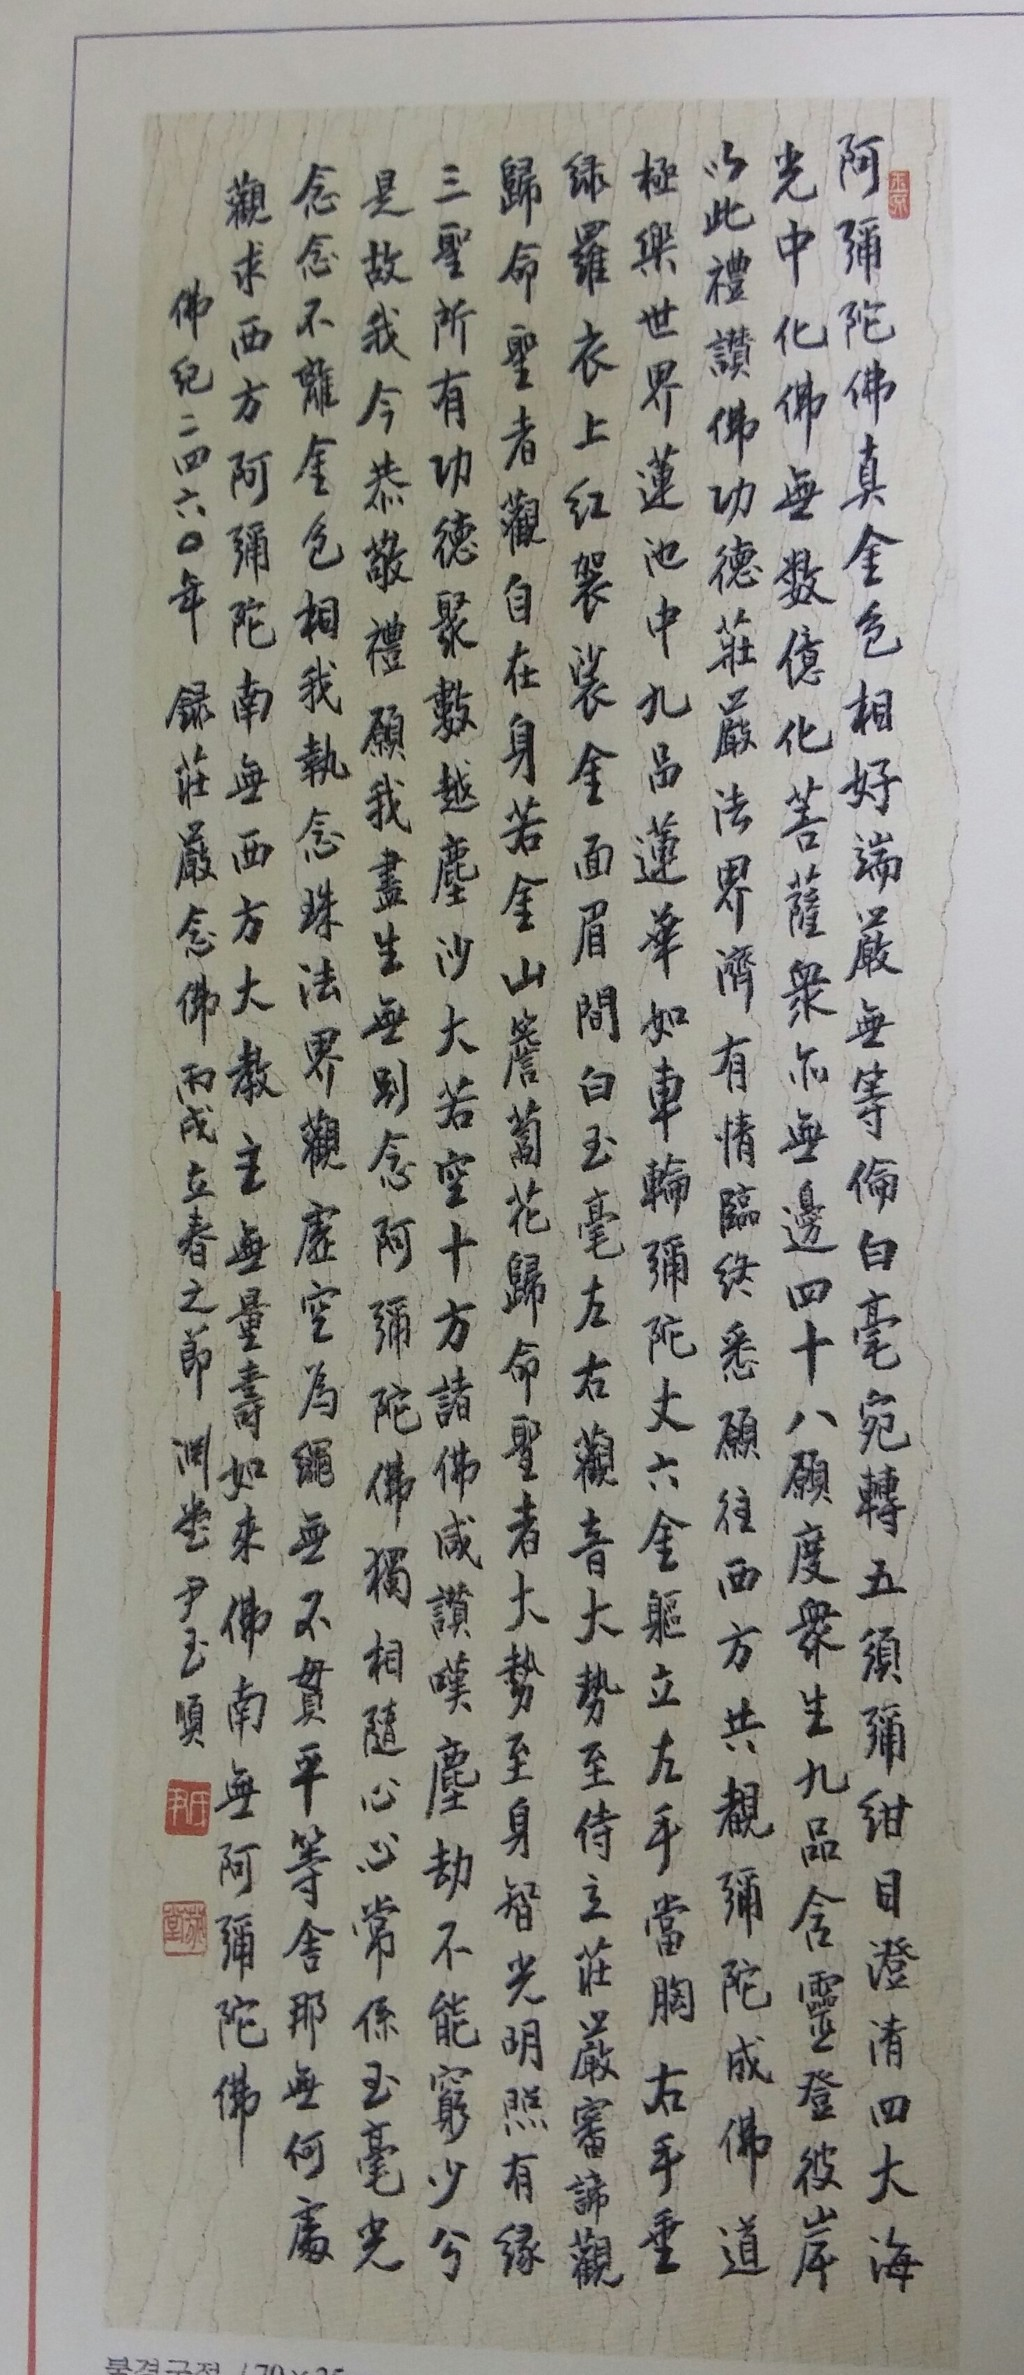 阿彌陀佛真金色相好端嚴無等倫白毫宛轉五須彌紺目澄清四大海
光中化佛無数億化菩薩衆亦無邊四十八願度衆生九品含靈登彼岸
以此禮讃佛功德莊嚴法界濟有情臨終悉願往西方共觀彌陀成佛道
極樂世界蓮池中九品蓮華如車輪彌陀丈六金軀立左手當胸右手垂
緑羅衣上紅袈裟金面眉間白玉毫左右觀音大勢至侍立莊嚴審諦觀
歸命聖者觀自在身若金山簷蔔花歸命聖者大勢至身智光明照有緣
三聖所有功德聚數越塵沙大若空十方諸佛咸讃嘆塵劫不能窮少分
是故我今恭敬禮願我盡生無別念阿彌陀佛獨相隨心心常係玉毫光
念念不離金色相我執念珠法界觀虛空為繩無不貫平等舍那無何處
觀求西方阿彌陀南無西方大教主無量壽如來佛南無阿彌陀佛
佛紀二四六〇年 錄莊嚴念佛 丙戌立春之節 淵堂 尹玉順
尹氏
불경구절 / 70×35